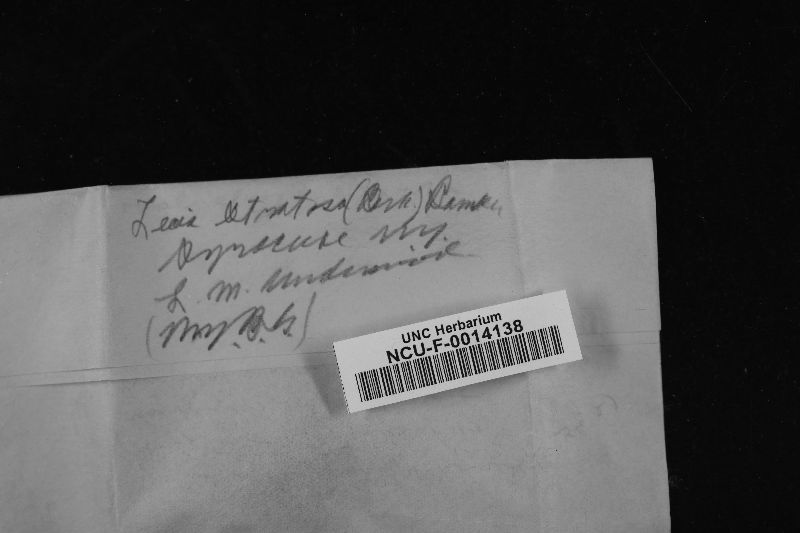 Leaia stratosa (Berk.) Banker
Syracuse N.Y.
L. M. Underwood
(N.Y.B.G.)
UNC Herbarium
NCU-F-0014138